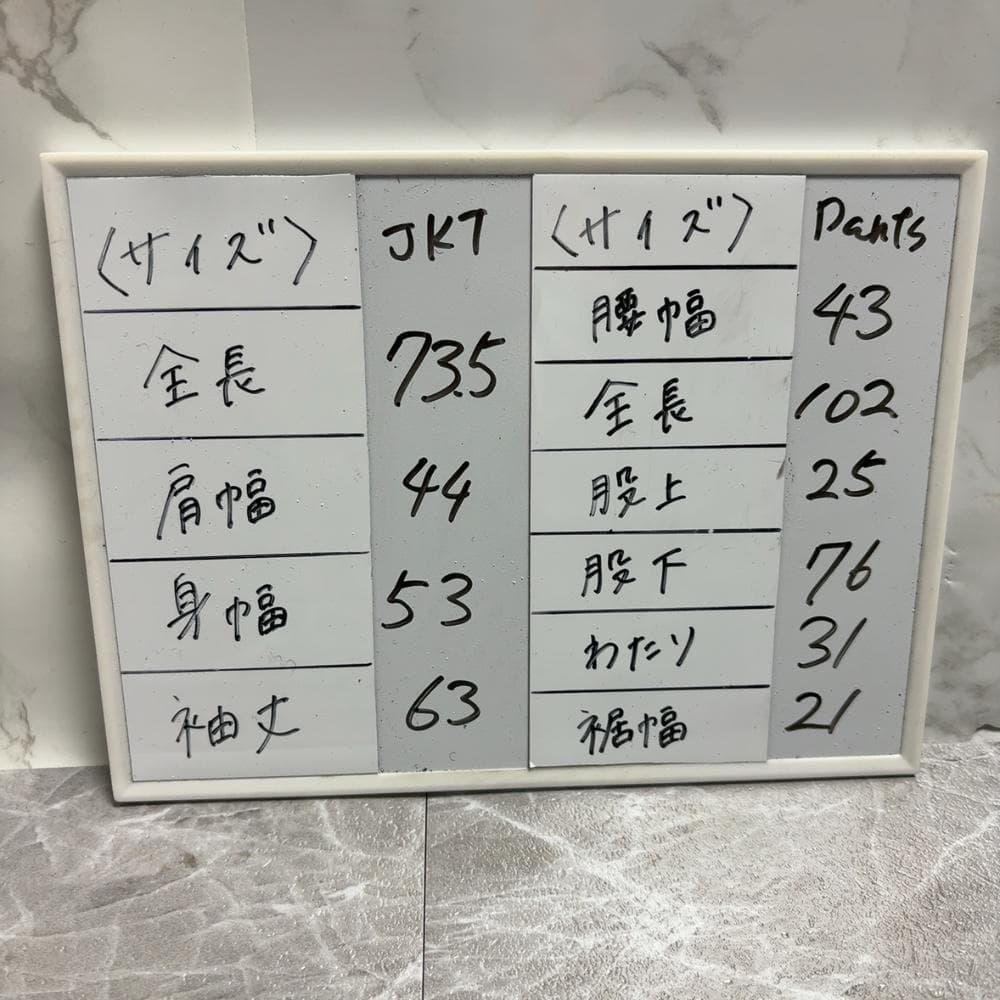 〈サイズ〉 JKT
全長 73.5
肩幅 44
身幅 53
袖丈 63
〈サイズ〉 Pants
腰幅 43
全長 102
股上 25
股下 76
わたり 31
裾幅 21